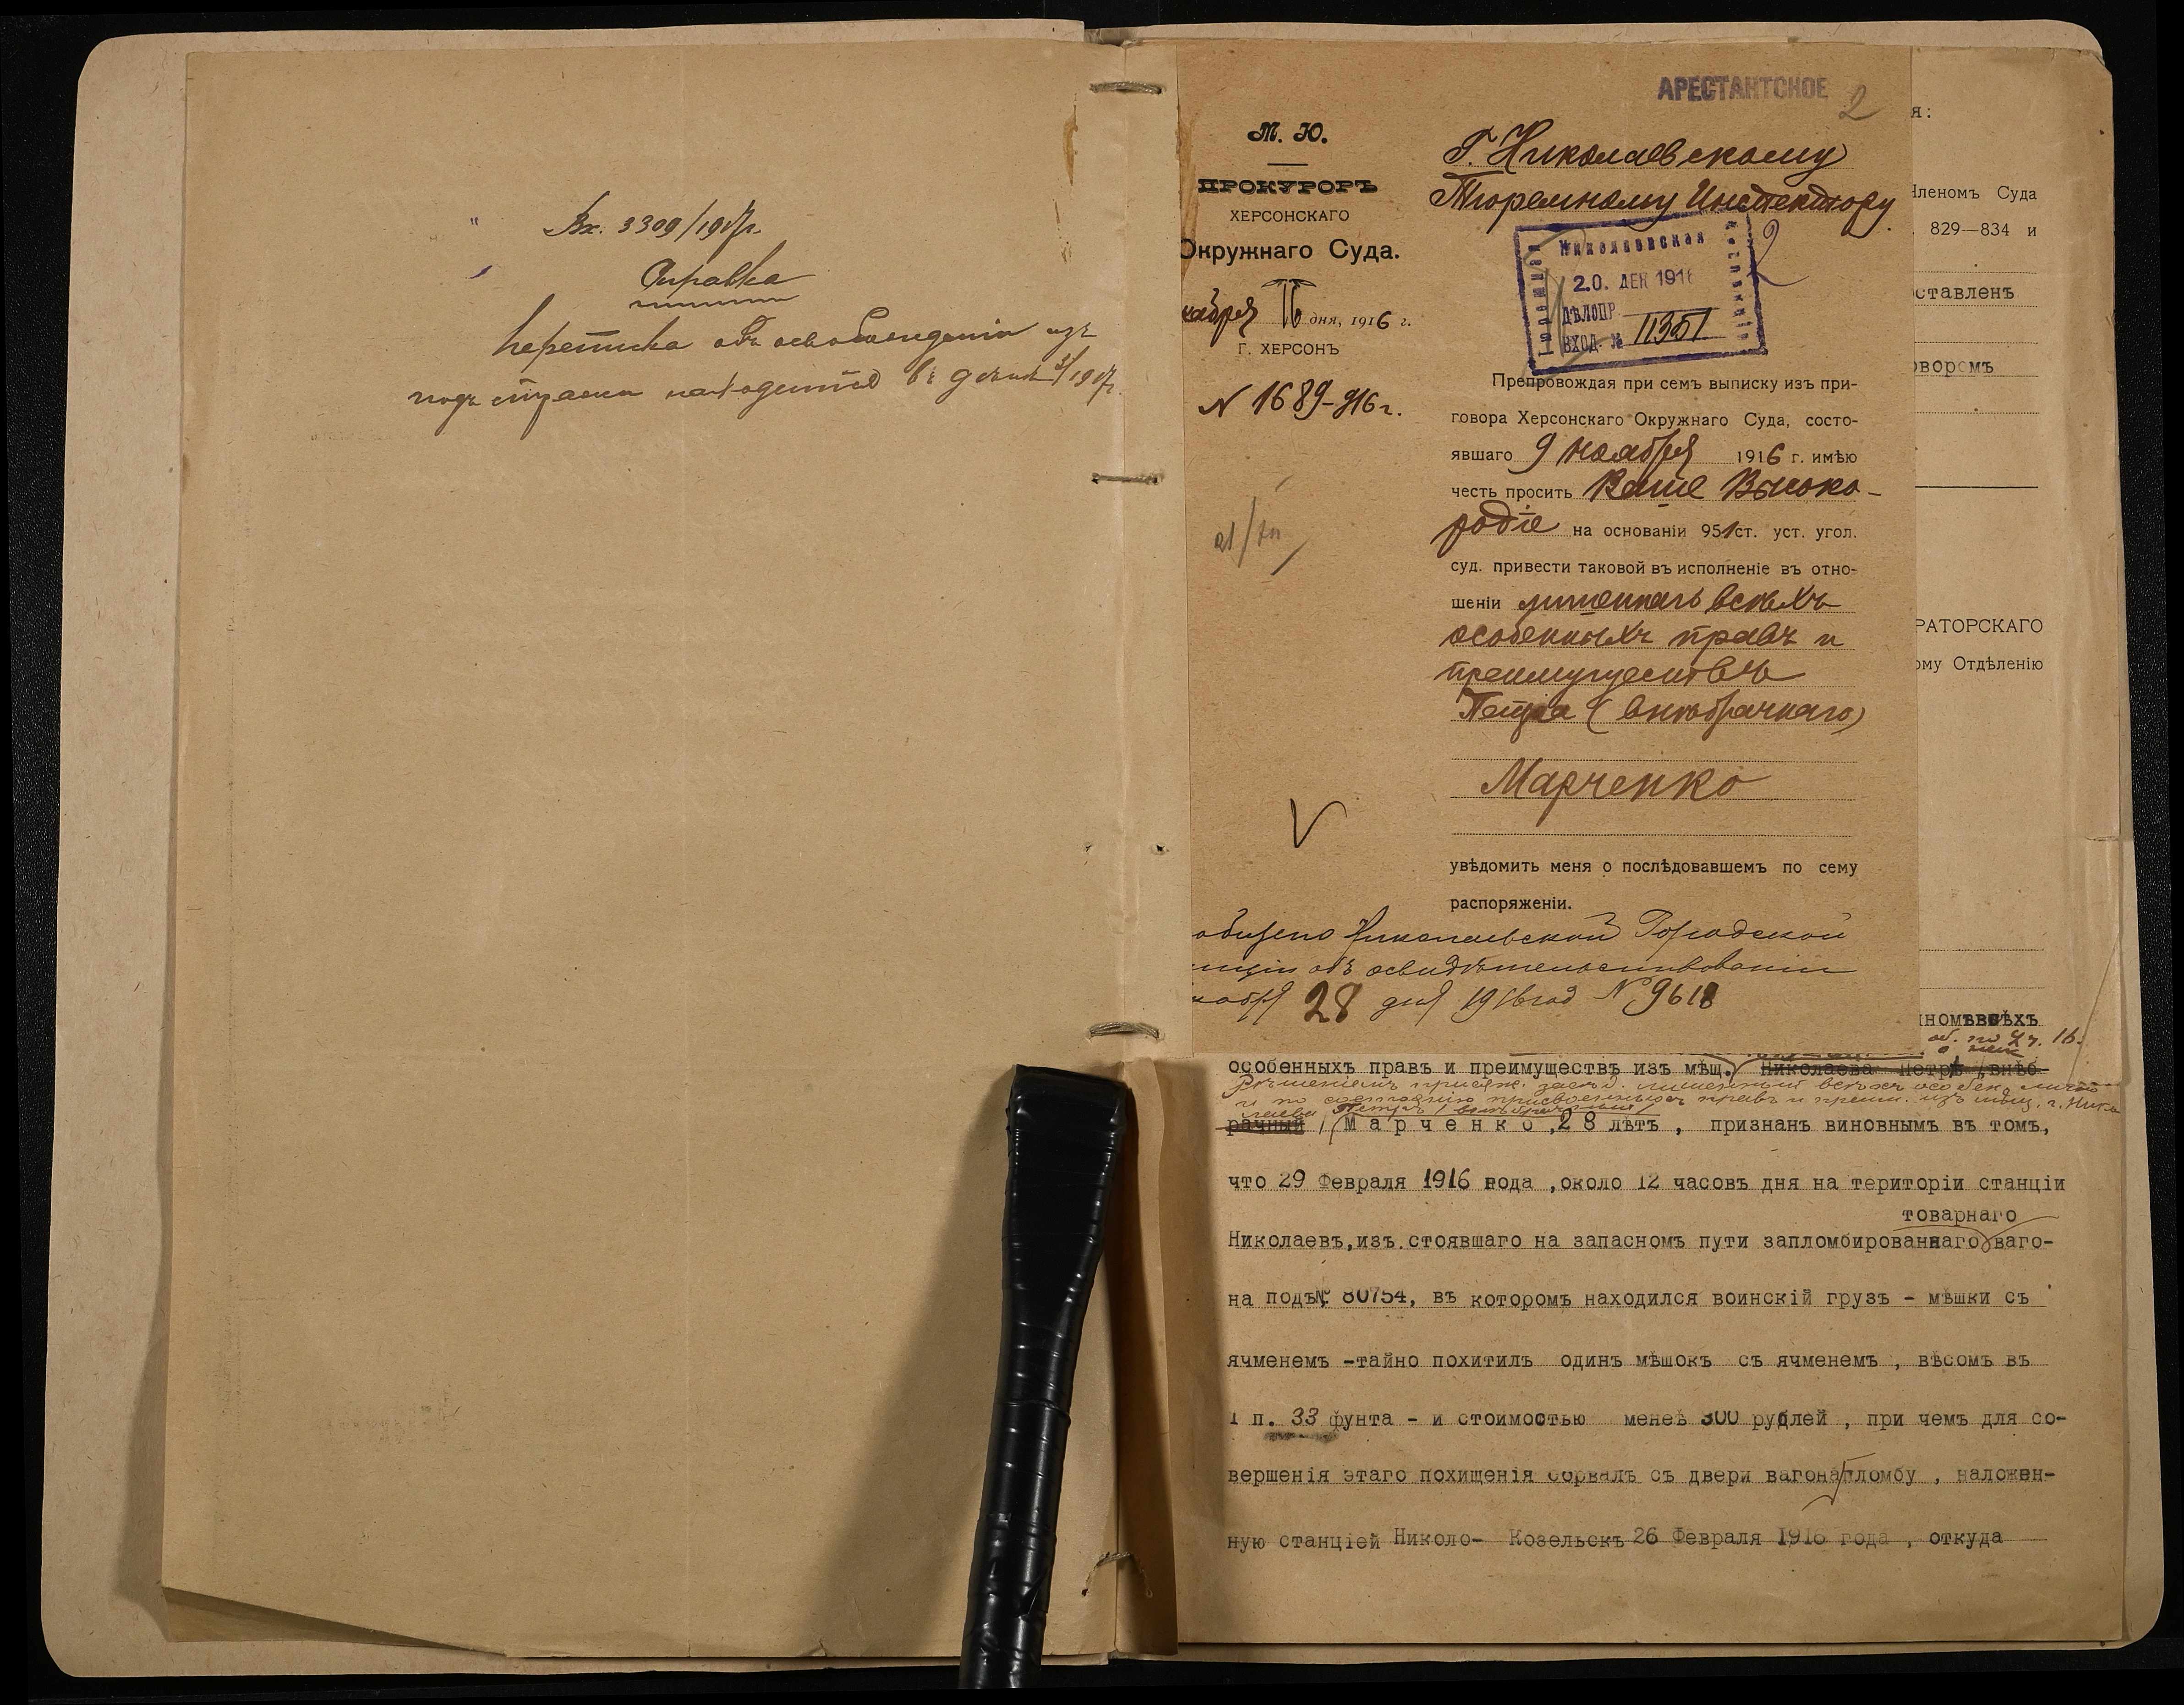 Вх. 3309/1917г.
Справка
Переписка объ освобожденіи изъ
подъ стражи находится въ дѣлѣ 1917г.
АРЕСТАНТСКОЕ
2
М. Ю.
ПРОКУРОРЪ
ХЕРСОНСКАГО
Окружнаго Суда.
кабря 16 дня, 1916 г.
Г. ХЕРСОНЪ
N 1689-916г.
Г. Николаевскому
Тюремному Инспектору.
Николаевская
20. ДЕК 1916
ДѢЛОПР.
ВХОД. № 11351
2
Препровождая при семъ выписку изъ при-
говора Херсонскаго Окружнаго Суда, состо-
явшаго 9 ноября 1916 г. имѣю
честь просить Ваше Высоко-
родіе на основаніи 951ст. уст. угол.
суд. привести таковой въ исполненіе въ отно-
шеніи лишеннаго всѣхъ
особенныхъ правъ и
преимуществъ
Петра (внѣбрачнаго)
Марченко
увѣдомить меня о послѣдовавшемъ по сему
распоряженіи.
общено Николаевской Городской
иціи объ освидѣтельствованіи
кабря 28 дня 1916 год N 9618
я:
Членомъ Суда
829—834 и
ставленъ
оворомъ
РАТОРСКАГО
ому Отдѣленію
номъ всѣхъ
особенныхъ правъ и преимуществъ изъ мѣщ. Николаева Петръ /внѣб-
Рѣшеніемъ присяж. засѣд. лишенный всѣхъ особен. лично
и по состоянію присвоенныхъ правъ и преим. изъ мѣщ. г. Нико
лаева Петръ /внѣбрачный/
рачный / Марченко, 28 лѣтъ, признанъ виновнымъ въ томъ,
что 29 Февраля 1916 года ,около 12 часовъ дня на територіи станціи
товарнаго
Николаевъ,изъ стоявшаго на запасномъ пути запломбированнаго ваго-
на подъ № 80754, въ которомъ находился воинскій грузъ - мѣшки съ
ячменемъ -тайно похитилъ одинъ мѣшокъ съ ячменемъ , вѣсомъ въ
1 п. 33 фунта - и стоимостью менеѣ 300 рублей , при чемъ для со-
вершенія этаго похищенія сорвалъ съ двери вагона пломбу , наложен-
ную станціей Николо- Козельскъ 26 Февраля 1916 года , откуда